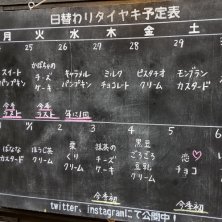 日替わりタイヤキ予定表
月 火 水 木 金
25 26 27 28 29 30 31
スイート
パンプキン
かぼちゃの
チーズ
ケーキ
キャラメル
パンプキン
ミルク
チョコレート
ピスタチオ
クリーム
モンブラン
カスタード
今季
ラスト
今季
ラスト
1 2 3 4 5
ばなな
カスタード
ほうじ茶
クリーム
栗
くり
クリーム
抹茶の
チーズ
ケーキ
黒豆
ごろごろ
豆乳
クリーム
恋♡
チョコ
今季初
今季初
twitter、instagramにて公開中！